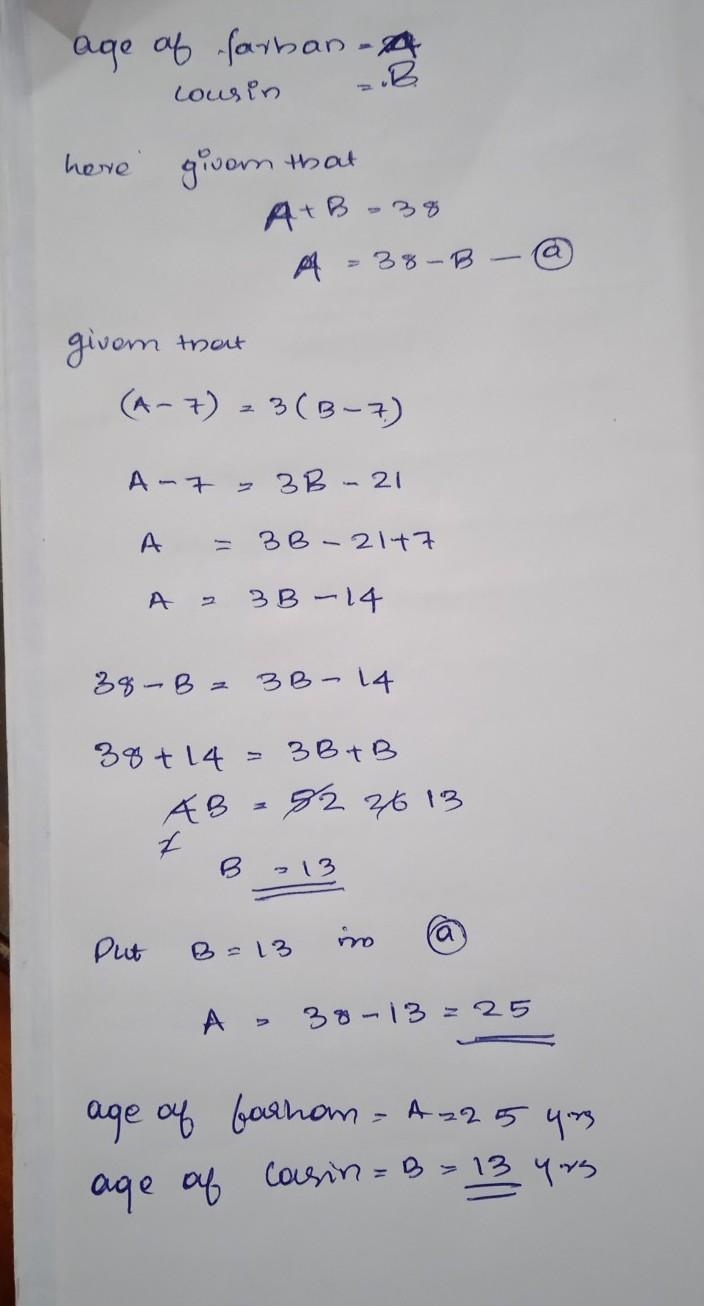 age of farhan = A
cousin = B
here given that
A + B = 38
A = 38 - B — ⓐ
given that
(A - 7) = 3(B - 7)
A - 7 = 3B - 21
A = 3B - 21 + 7
A = 3B - 14
38 - B = 3B - 14
38 + 14 = 3B + B
4B = 52 26 13
2
B = 13
Put B = 13 in ⓐ
A = 38 - 13 = 25
age of farhan = A = 25 yrs
age of Casin = B = 13 yrs